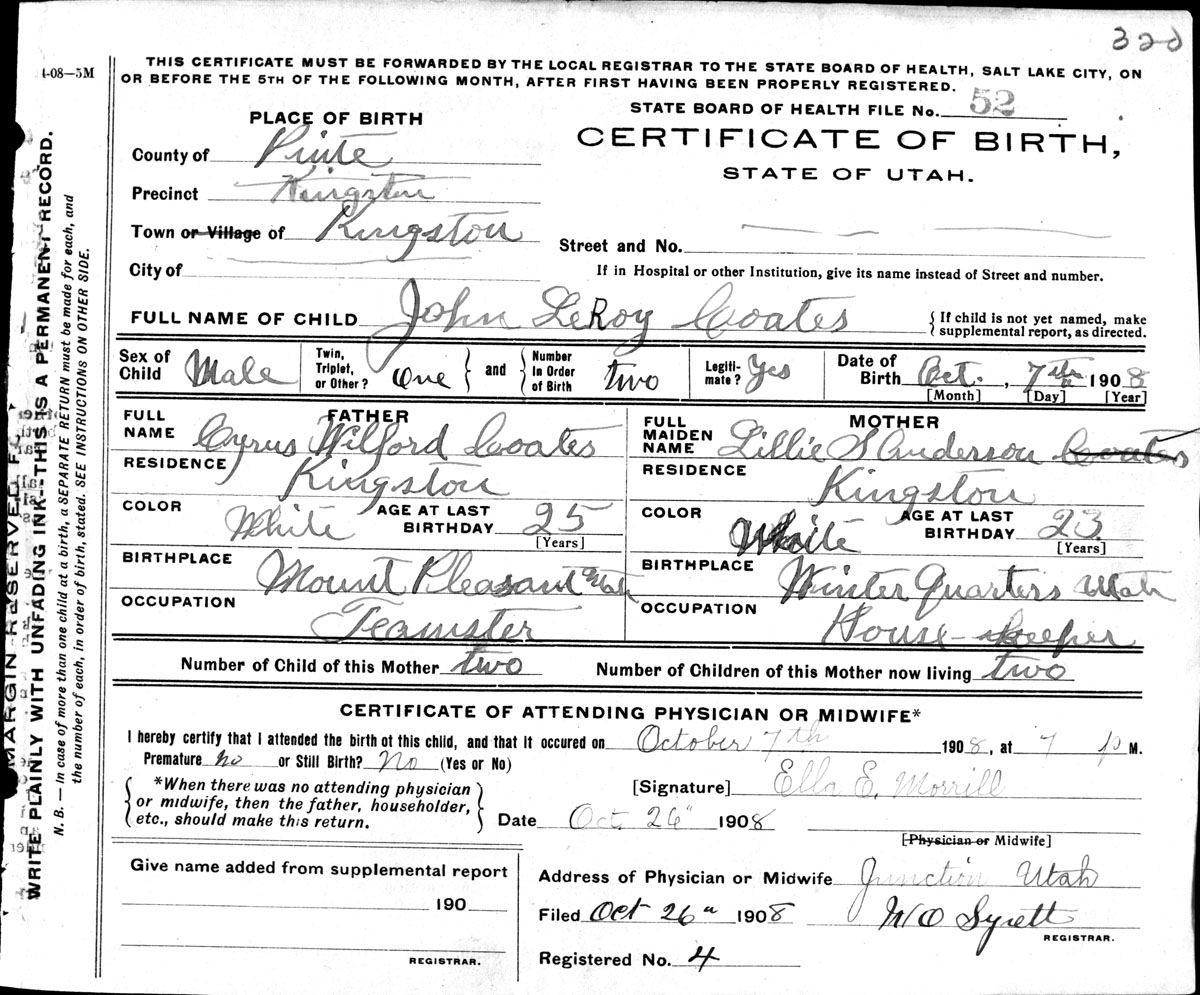 320
1-08—5M
THIS CERTIFICATE MUST BE FORWARDED BY THE LOCAL REGISTRAR TO THE STATE BOARD OF HEALTH, SALT LAKE CITY, ON
OR BEFORE THE 5TH OF THE FOLLOWING MONTH, AFTER FIRST HAVING BEEN PROPERLY REGISTERED.
STATE BOARD OF HEALTH FILE No. 52
PLACE OF BIRTH
CERTIFICATE OF BIRTH,
STATE OF UTAH.
County of Piute
Precinct Kingston
Town or Village of Kingston
Street and No.
City of
If in Hospital or other Institution, give its name instead of Street and number.
FULL NAME OF CHILD John LeRoy Coates { If child is not yet named, make supplemental report, as directed.
Sex of Child Male Twin, Triplet, or Other? One } and { Number In Order of Birth two Legiti- mate? Yes Date of Birth Oct. , 7th 1908
[Month] [Day] [Year]
FATHER
FULL NAME Cyrus Wilford Coates
RESIDENCE Kingston
COLOR White AGE AT LAST BIRTHDAY 25
[Years]
BIRTHPLACE Mount Pleasant Utah
OCCUPATION Teamster
MOTHER
FULL MAIDEN NAME Lillie S Anderson Coates
RESIDENCE Kingston
COLOR White AGE AT LAST BIRTHDAY 23
[Years]
BIRTHPLACE Winter Quarters Utah
OCCUPATION House-keeper
Number of Child of this Mother two Number of Children of this Mother now living two
CERTIFICATE OF ATTENDING PHYSICIAN OR MIDWIFE*
I hereby certify that I attended the birth of this child, and that it occured on October 7th 1908, at 7 p M.
Premature No or Still Birth? No (Yes or No)
{ *When there was no attending physician
or midwife, then the father, householder,
etc., should make this return. }
[Signature] Ella E. Morrill
Date Oct. 26" 1908
[Physician or Midwife]
Give name added from supplemental report
190
REGISTRAR.
Address of Physician or Midwife Junction Utah
Filed Oct 26" 1908 W O Syrett
REGISTRAR.
Registered No. 4
MARGIN RESERVED FO
WRITE PLAINLY WITH UNFADING INK---THIS IS A PERMANENT RECORD.
N. B. — In case of more than one child at a birth, a SEPARATE RETURN must be made for each, and
the number of each, in order of birth, stated. SEE INSTRUCTIONS ON OTHER SIDE.